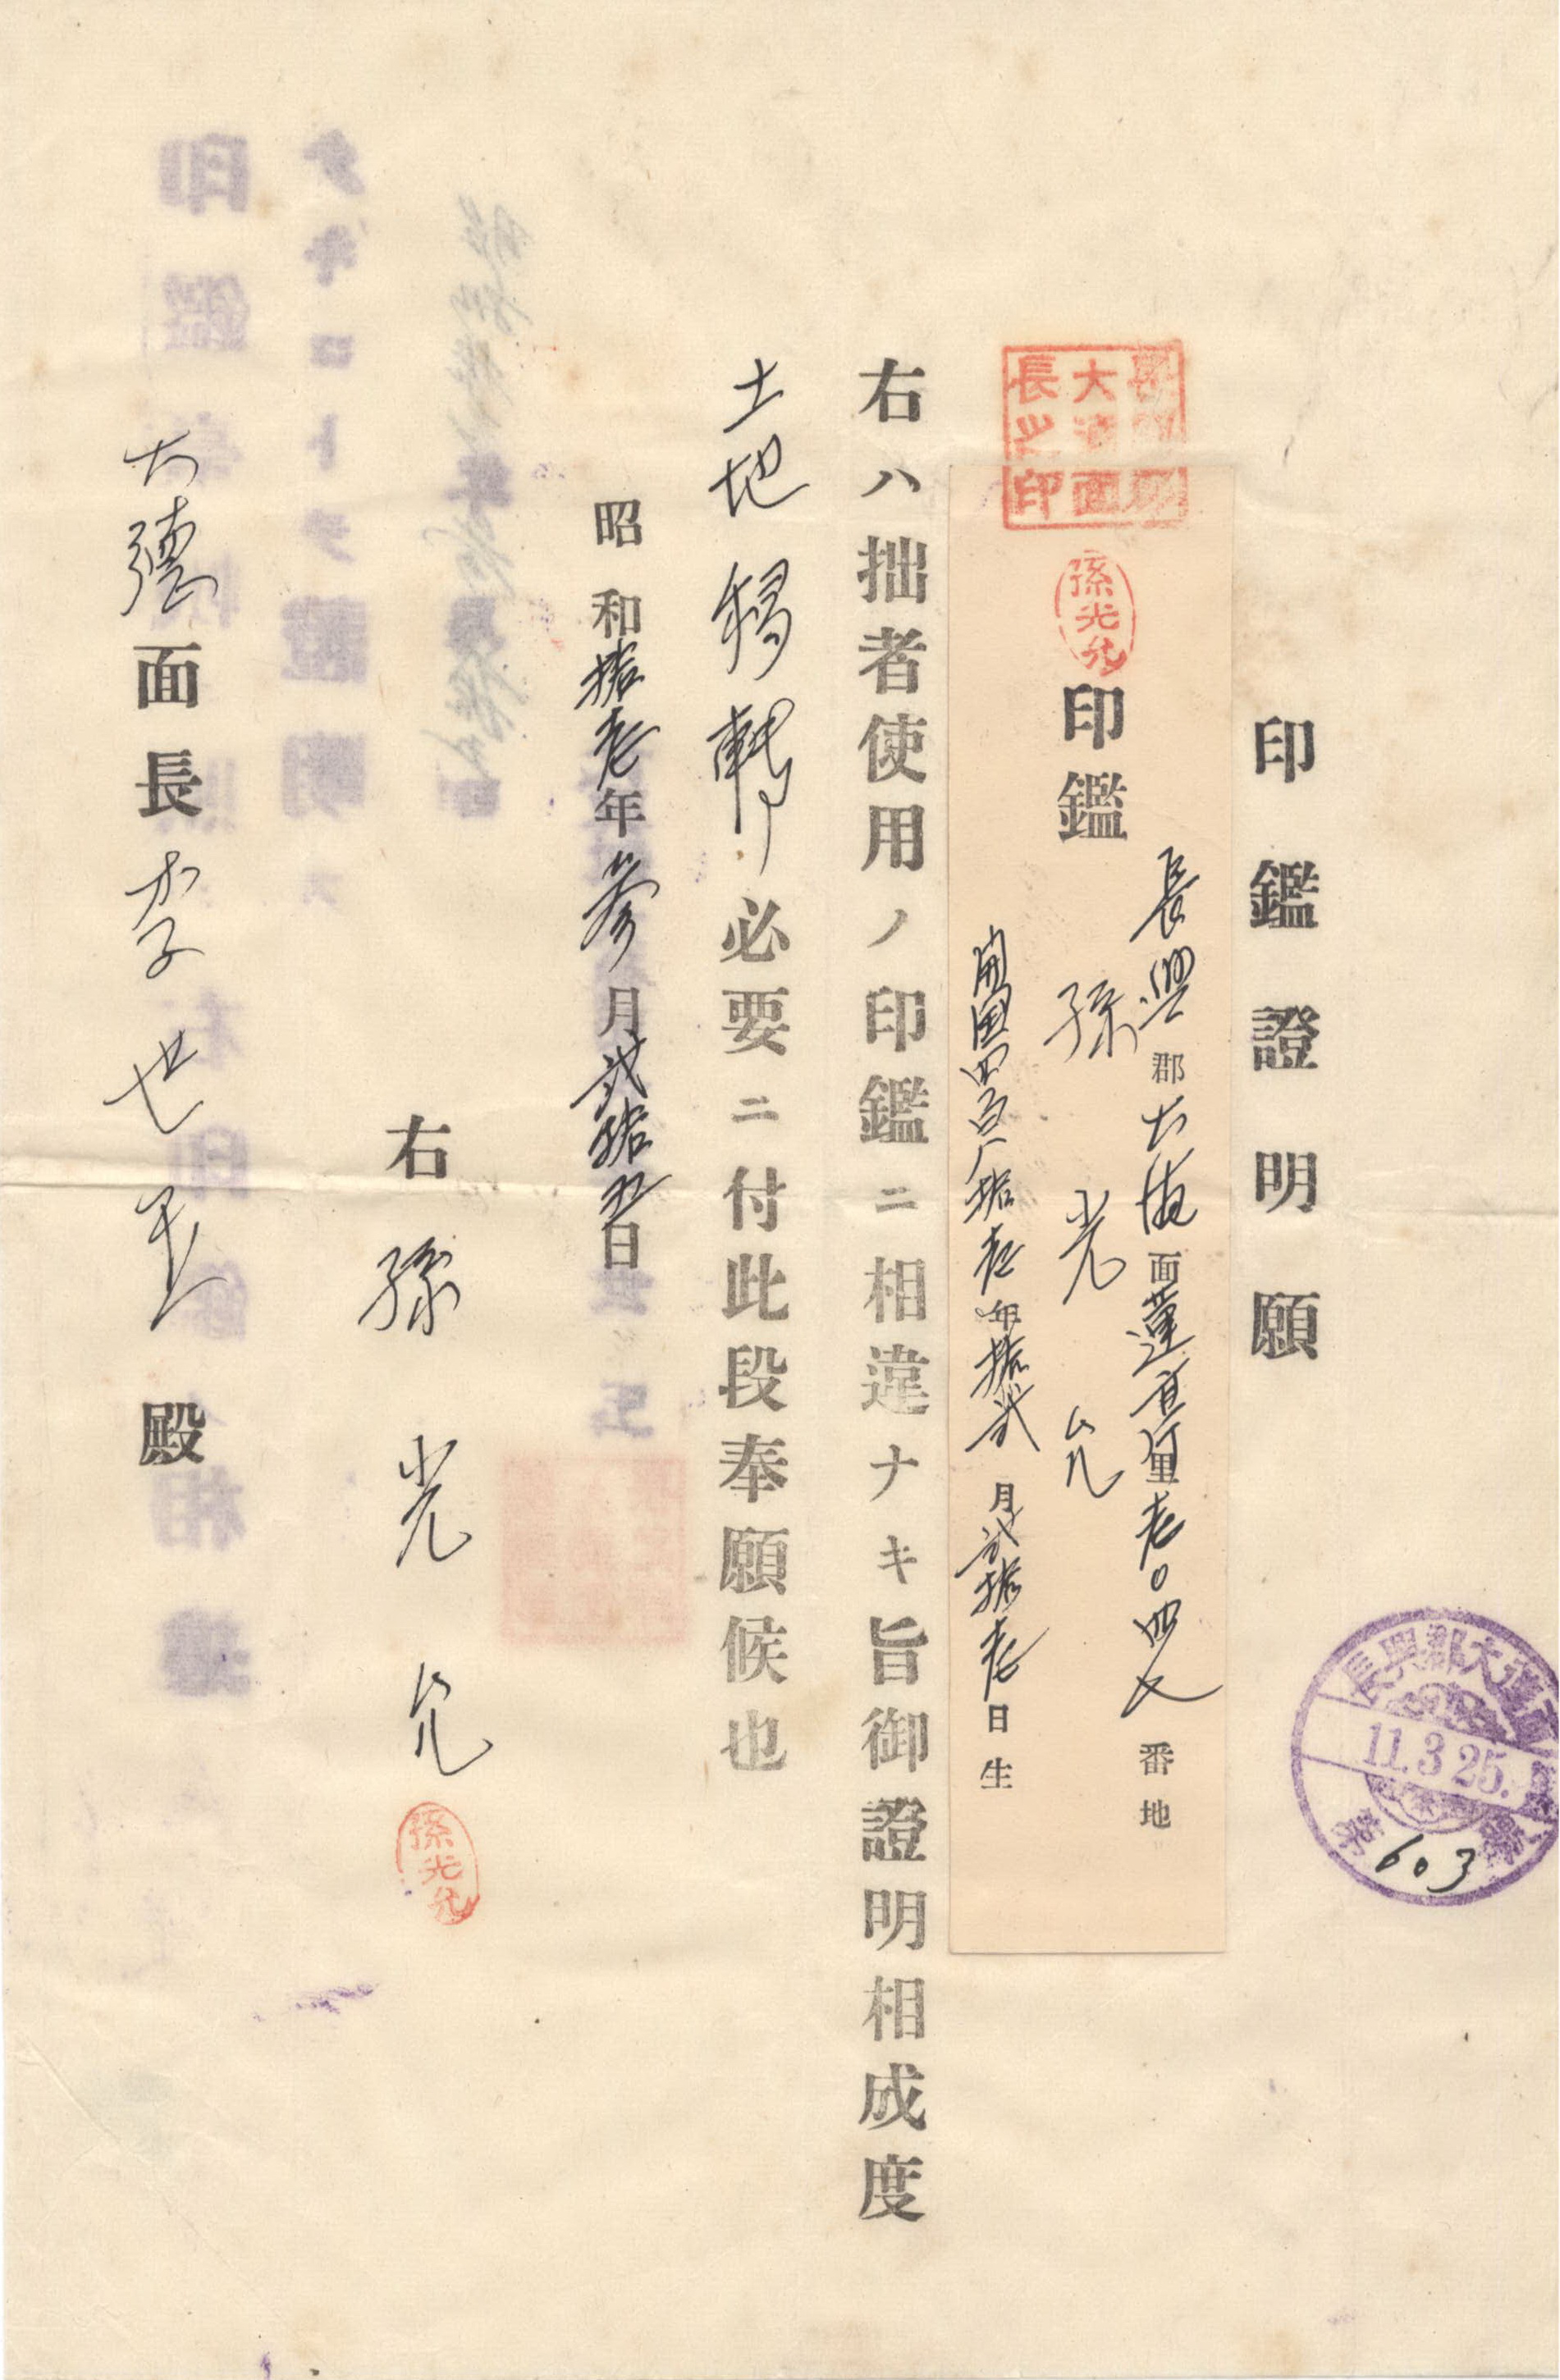 印鑑證明願
長興郡大德面蓮亘里壱〇四七番地
印鑑 孫光允
孫光允
開國四百八拾壱年拾弐月弐拾壱日生
長興郡
大德面
長之印
右ハ拙者使用ノ印鑑ニ相違ナキ旨御證明相成度
土地移轉必要ニ付此段奉願候也
昭和拾壱年參月弐拾五日
右 孫光允
孫光允
大德面長李世玉殿
長興郡大德面
11.3.25.
第603號